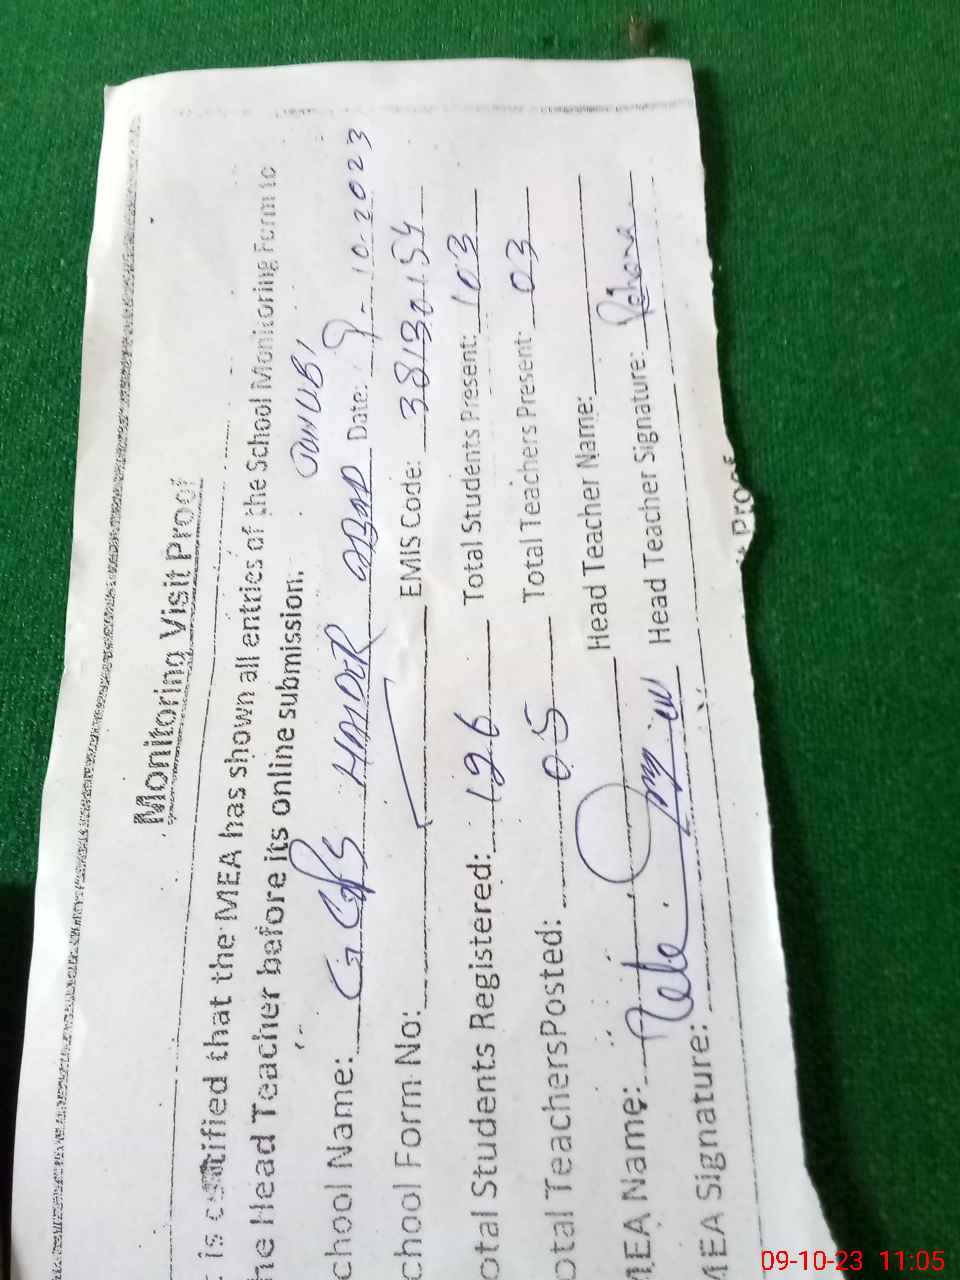 Monitoring Visit Proof
is certified that the MEA has shown all entries of the School Monitoring Form to
he Head Teacher before its online submission.
chool Name: GGPS HAIDER ABAD JANUBI Date: 9-10-2023
chool Form No: EMIS Code: 38130154
otal Students Registered: 126 Total Students Present: 103
otal TeachersPosted: 05 Total Teachers Present: 03
MEA Name: Head Teacher Name:
MEA Signature: Head Teacher Signature:
Proof
09-10-23 11:05